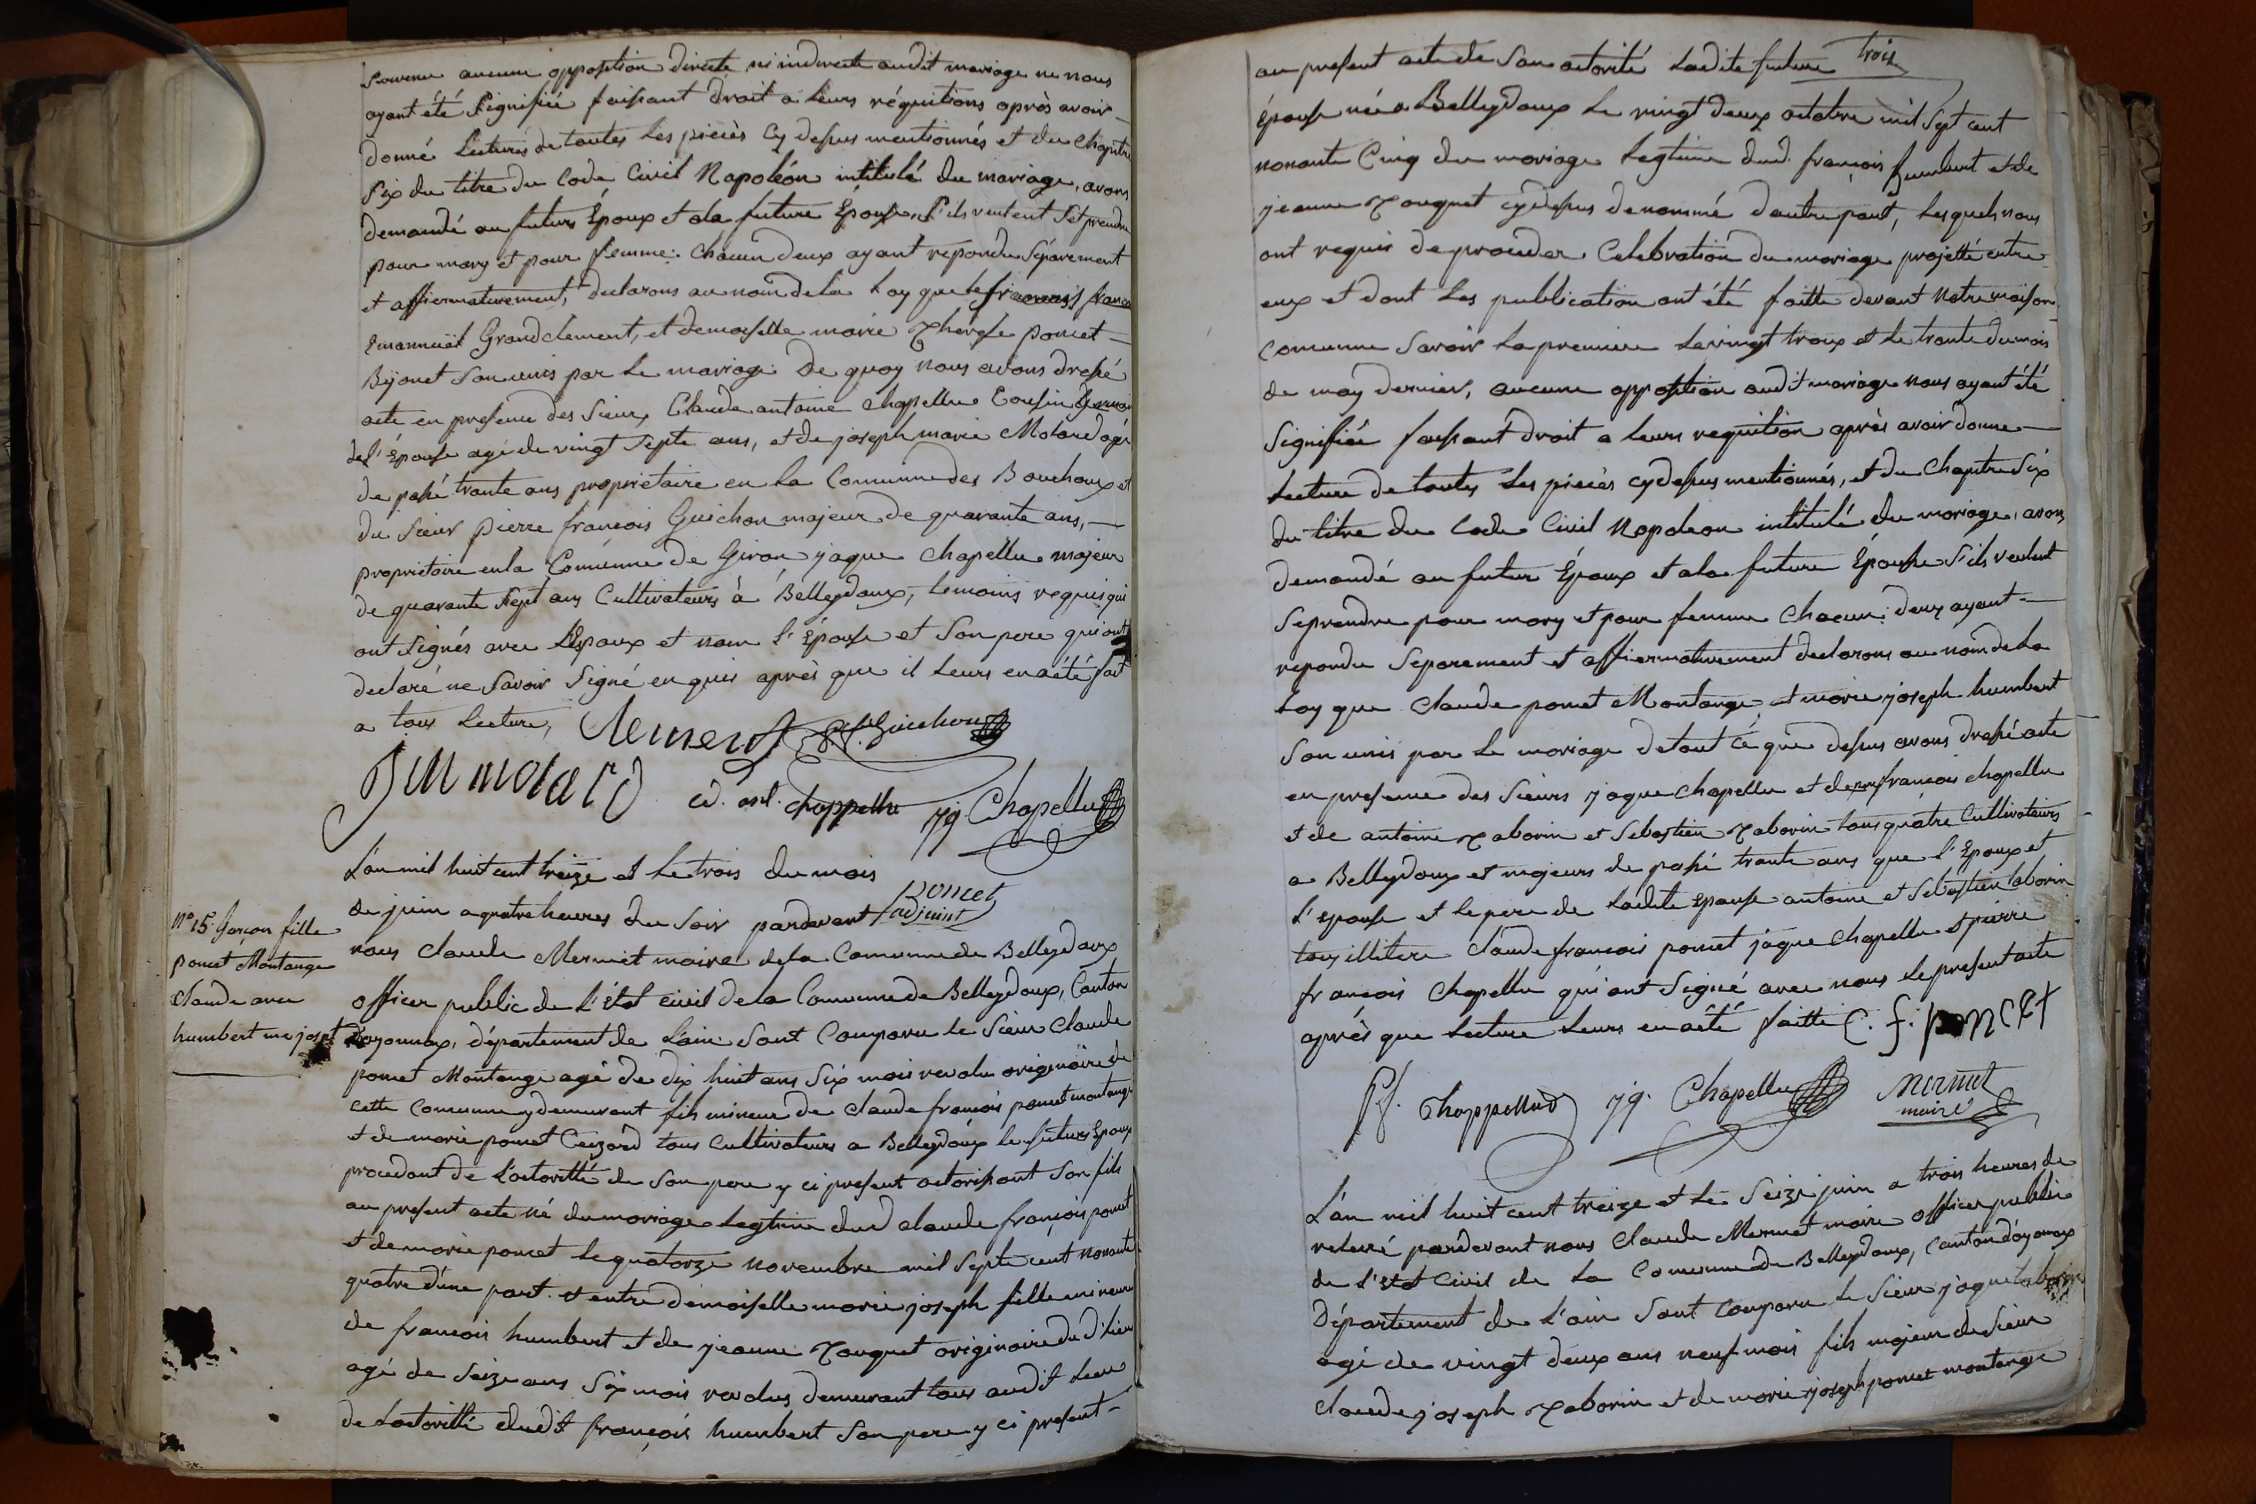 comune aucune opposition directe ni indirecte audit mariage ne nous
ayant été Signifiée faisant droit a leurs réquitions après avoir
donné Lectures de toutes les pieces cy dessus mentionnés et du chapitre
Six du titre du Code Civil Napoléon intitulé du mariage, avons
demandé au futurs Époux et ala future Épouse, S'ils veulent Set prendre
pour mary et pour femme: chacun deux ayant repondu Séparement
et affiermativement, declarons au nom de la Loy que le françois
Emannuël Grandclement, et demoiselle marie Therese poncet
Bijonet Son unis par le mariage. De quoy nous avons dressé
acte en presence des Sieurs Claude antoine chapellu Cousin Germain
de l'Épouse agé de vingt Septe ans, et de joseph marie Molard agé
de passé trante ans proprietaire en la Commune des Bouchoux et
du Sieur pierre françois Guichon majeur de quarante ans,
proprietaire en la Comunne de Giron jaque Chapellu majeur
de quarante Sept ans Cultivateurs à Belleydoux, temoins requis qui
ont Signés avec L'Epoux et non l'Épouse et Son pere qui ont
declaré ne Savoir Signé enquis après que il Leurs en a été fait
a tous Lecture,
Clement P.f. Guichon
JM molard cd. ant. chappellu jq. Chapellu
L'an mil huit cent treize et Le trois du mois
poncet
adjoint
de juin a quatre heures du Soir pardevant
nous claude Mermet maire de la Comunne de Belleydoux
officier public de l'État civil de la Comunne de Belleydoux, Canton
d'oyonnax, département de Lain Sont Comparu le Sieur Claude
poncet Montange agé de dix huit ans Six mois revolu originaire de
cette Comunne y demeurant fils mineur de claude françois poncet montange
et de marie poncet Crezard tous Cultivateurs a Belleydoux le futurs Epoux
procedant de L'actoritté de Son pere y ci present actorissant Son fils
au present acte né du mariage Legtime dud claude françois poncet
et de marie poncet le quatorze novembre mil Septe cent nonante
quatre d'une part. et entre demoiselle marie joseph fille mineure
de francois humbert et de jeanne Touquet originaire du d'lieu
agé de Seize ans Six mois revolus demeurant tous audit Lieu
de Lactoritté dudit françois humbert Son pere y ci present
n° 15. Garçon fille
poncet Montange
claude avec
humbert me josph
trois
au present acte de Son actorité Ladite future
Épouse née a Belleydoux Le vingt deux octobre mil Sept cent
nonante Cinq du mariage Legtime dud. françois humbert et de
jeanne Touquet cy dessus denommé d'autre part, Lesquels nous
ont requis de proceder Celebration du mariage projetté entre
eux et dont Les publication ont été faitte devant Notre maison
Comunne Savoir La premiere Le vingt troix et Le trante du mois
de may dernier, aucune opposition audit mariage nous ayant été
Signifiée faisant droit a leurs requition après avoir donne
Lecture de toutes Les pieces cy dessus mentionnés, et du Chapitre Six
du titre du Code Civil Napoleon intitulé du mariage, avons
demandé au futur Époux et ala future Épouse S'ils veulent
Se prendre pour mary et pour femme Chacun deux ayant
repondu Separement et affiermativement declarons au nom de la
Loy que Claude poncet Montange et marie joseph humbert
Son unis par Le mariage de tout cé que dessus avons dressé acte
en presence des Sieurs jaque chapellu et de francois chapellu
et de antoine Taborin et Sebastien Taborin tous quatre Cultivateurs
a Belleydoux et majeurs de passé trante ans que l'Epoux et
L'epouse et Le pere de Ladite Epouse antoine et Sebastien taborin
tous illitere claude françois poncet jaque chapellu et pierre
françois chapellu qui ont Signé avec nous Le present acte
après que Lecture Leurs en a été faitte C. f. poncet
P.f. Chappellud jq. Chapellu Mermet
maire
L'an mil huit cent treize et Le Seize juin a trois heures de
relevé pardevant nous Claude Mermet maire officier public
de l'Etat civil de La Comunne de Belleydoux, Canton d'oyonnax
Département de L'ain Sont Comparu Le Sieur jaque taborin
agé de vingt deux ans neuf mois fils majeur du Sieur
claude joseph Taborin et de marie joseph poncet montange